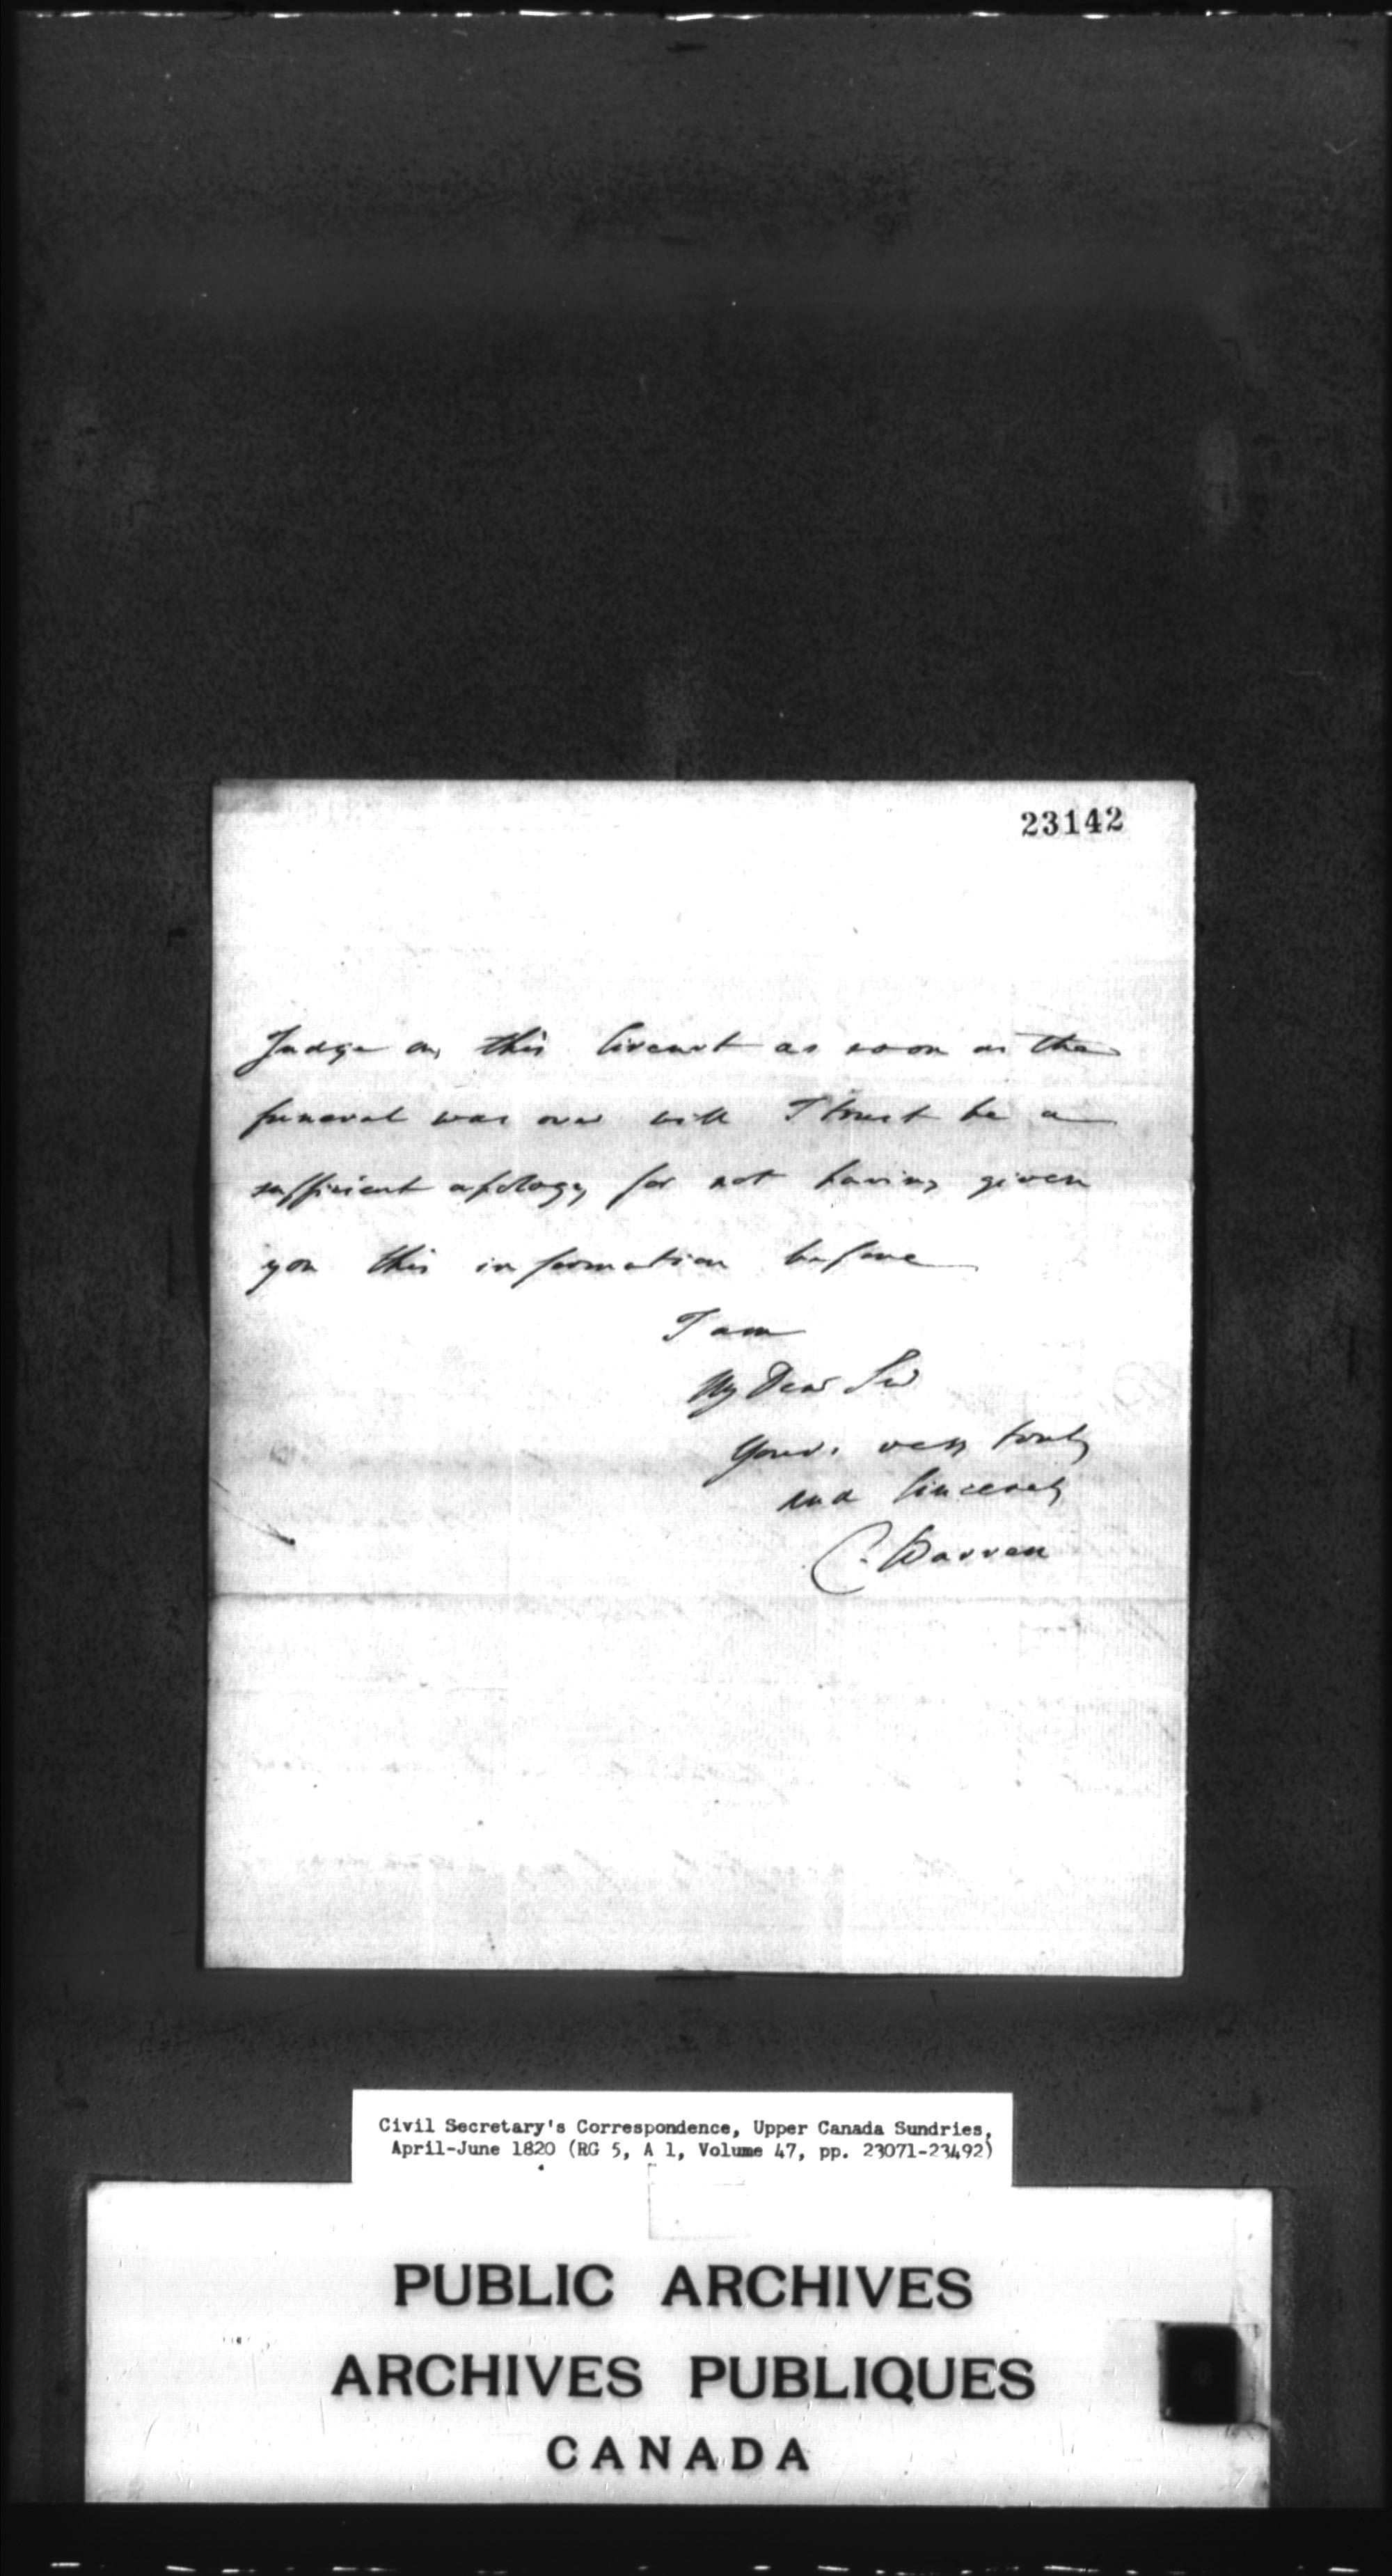 23142
Judge on this Circuit as soon as the
funeral was over will I trust be a
sufficient apology for not having given
you this information before
I am
My Dear Sir
Yours very truly
and Sincerely
C. Warren
Civil Secretary's Correspondence, Upper Canada Sundries,
April-June 1820 (RG 5, A 1, Volume 47, pp. 23071-23492)
PUBLIC ARCHIVES
ARCHIVES PUBLIQUES
CANADA